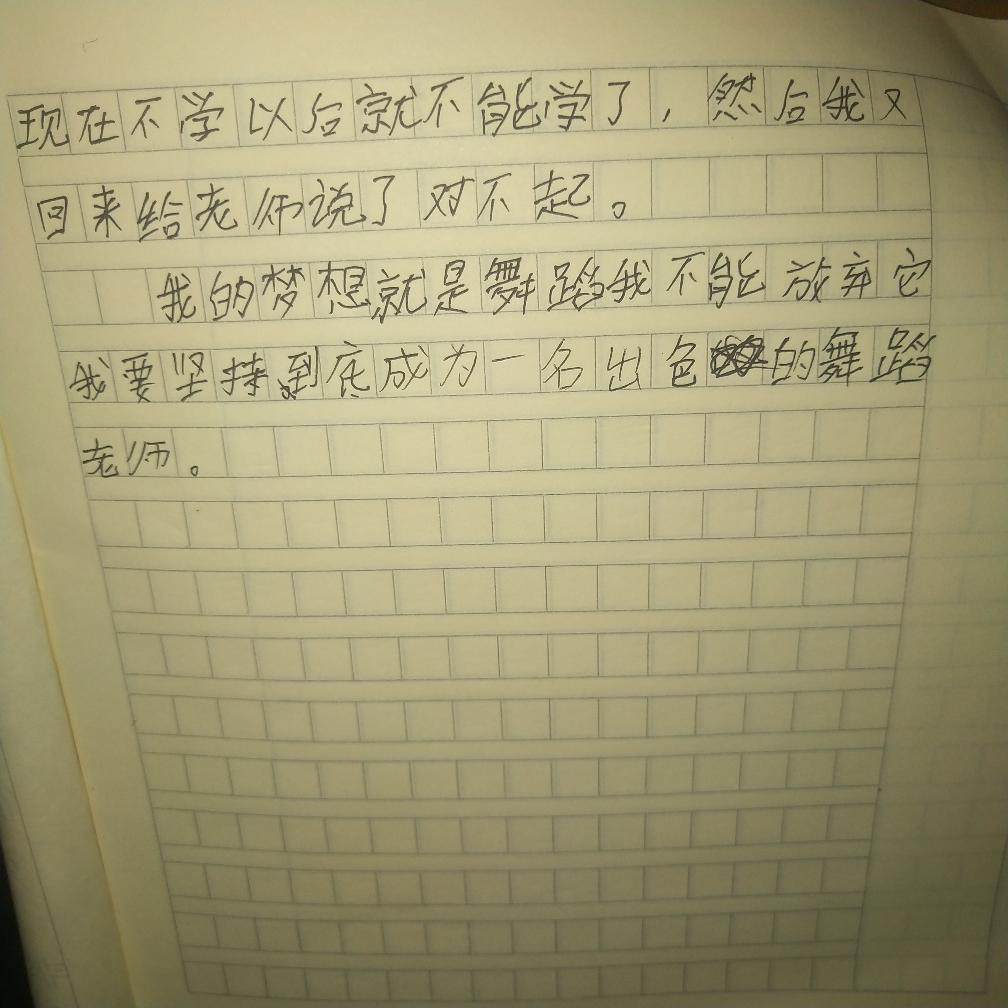 现在不学以后就不能学了，然后我又
回来给老师说了对不起。
我的梦想就是舞蹈我不能放弃它
我要坚持到底成为一名出色的舞蹈
老师。